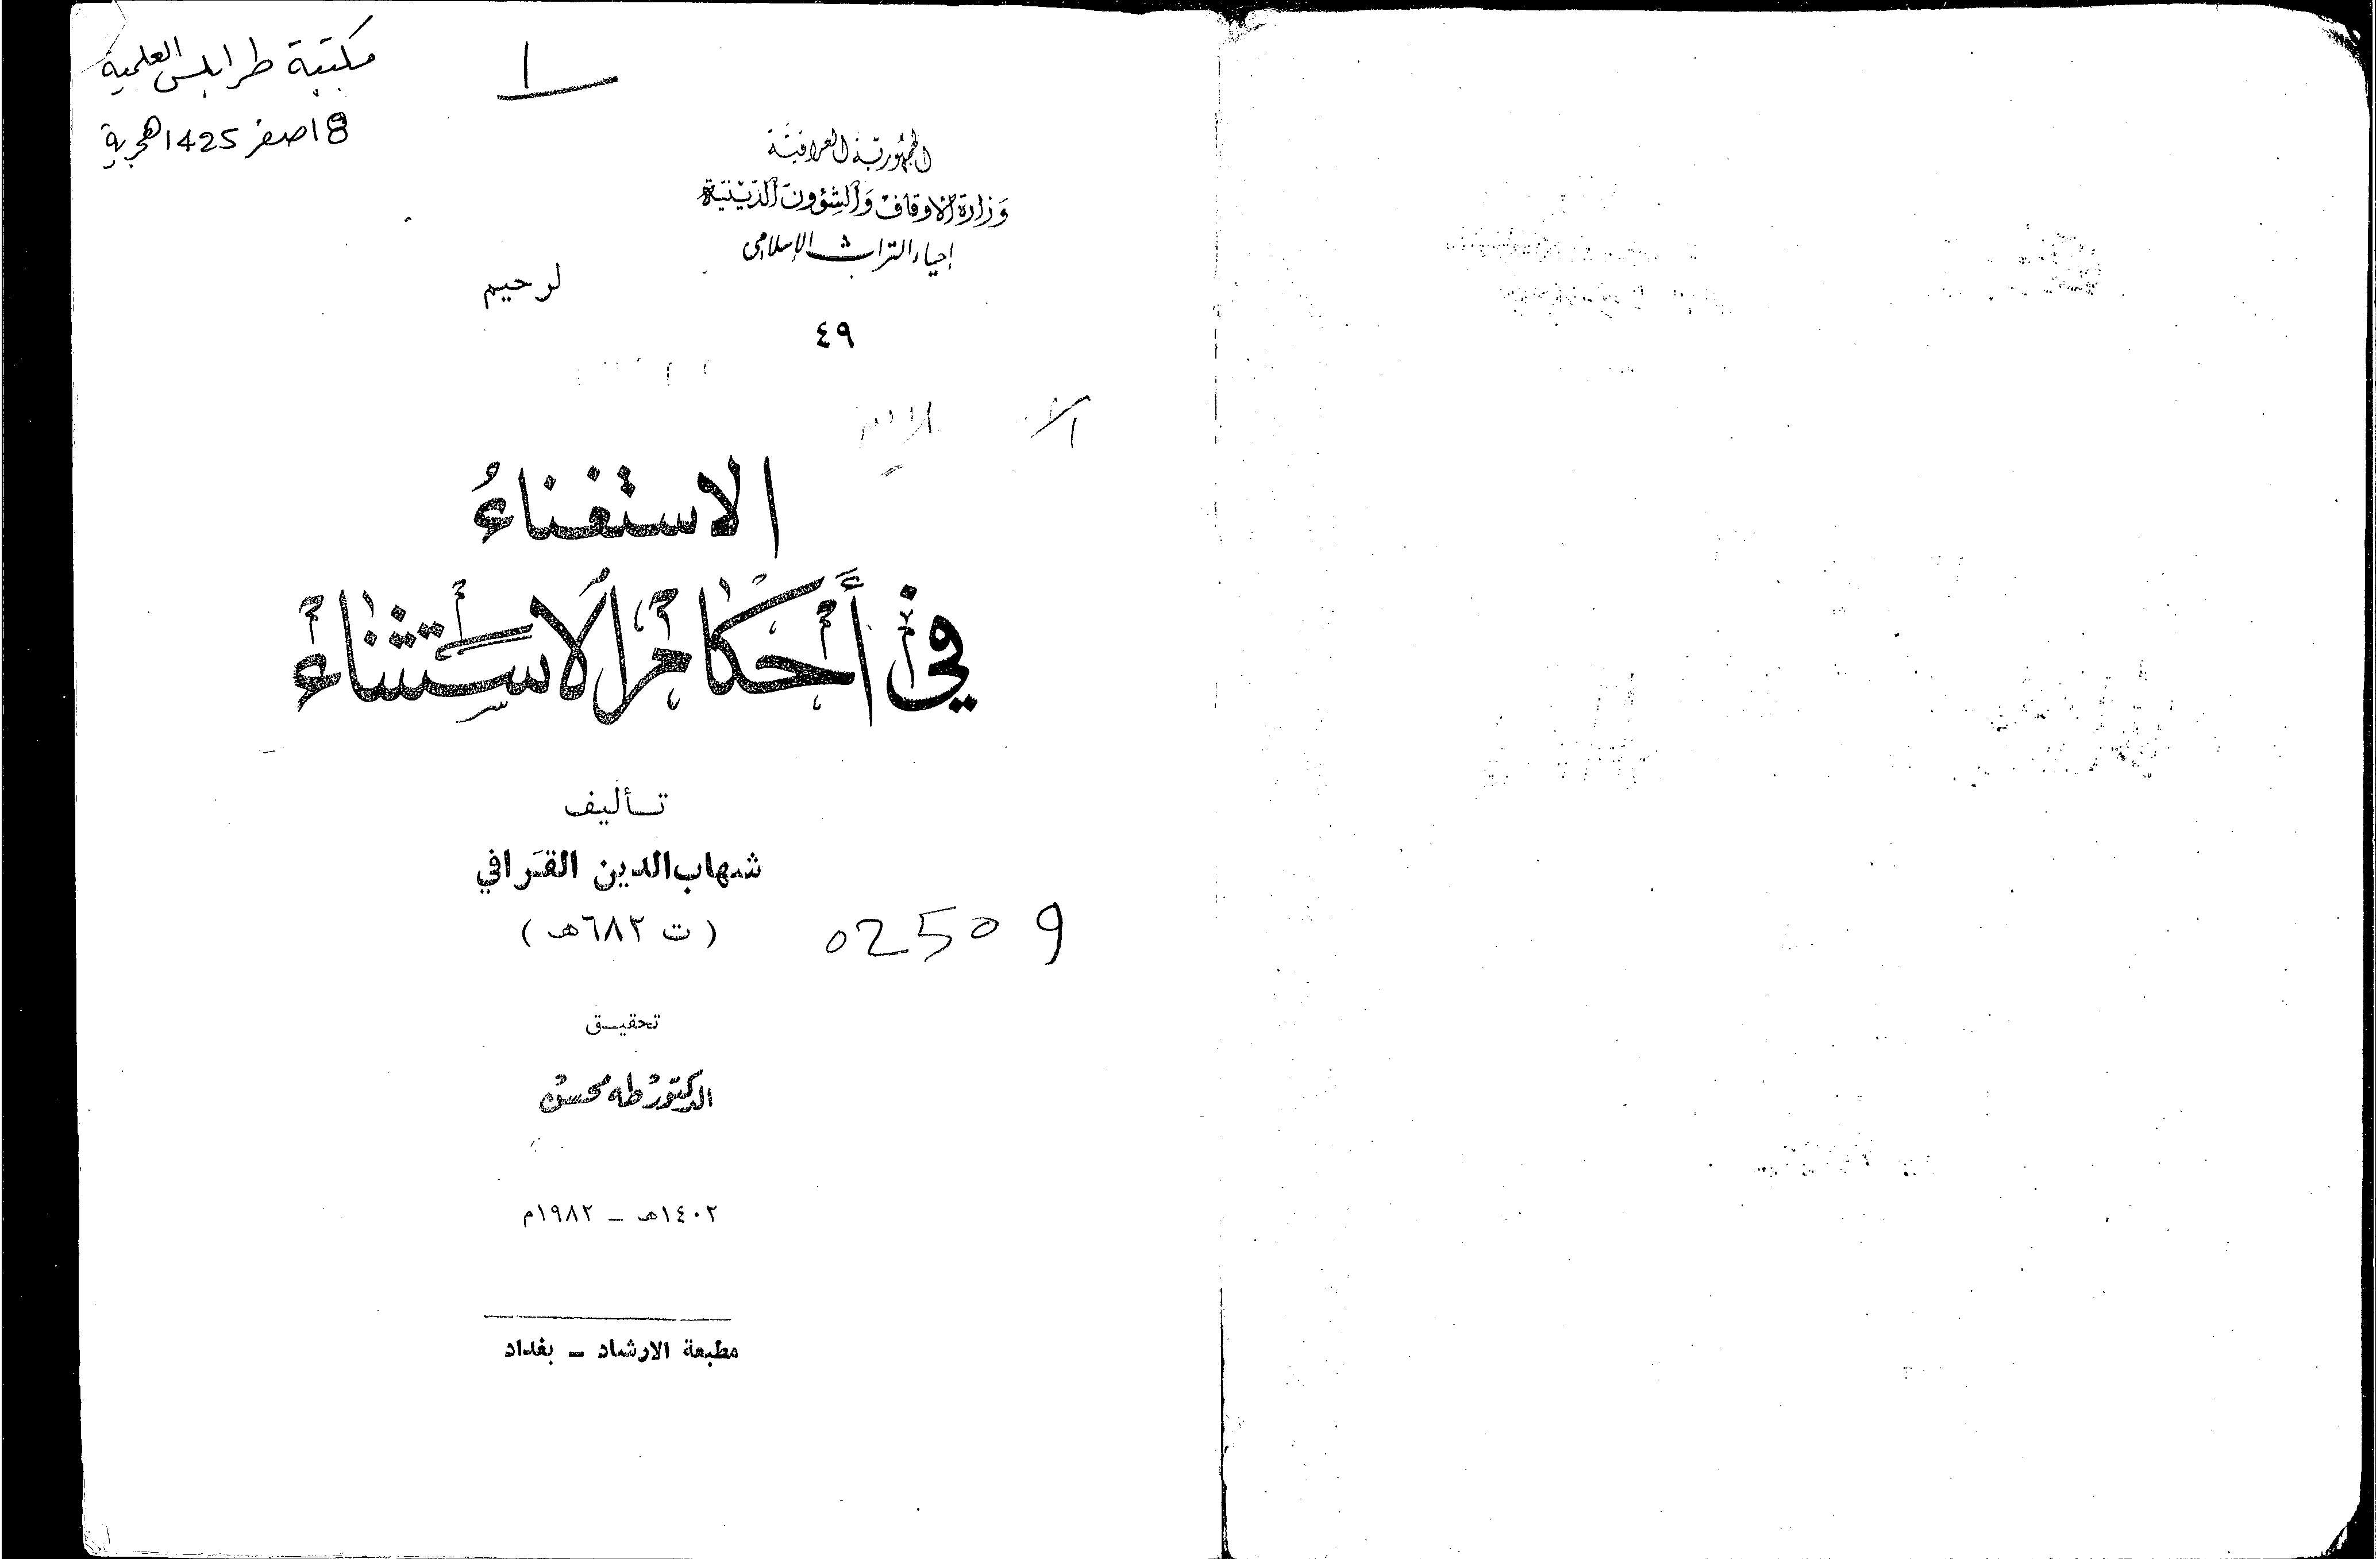 مكتبة طرابلس العلمية
18 صفر 1425 هجرية
الجمهورية العراقية
وَزارة الأوقاف وَالشؤون الدّينيّة
إحياء التراث الإسلامي
لرحيم
٤٩
الاستغناءُ
في أَحْكامِ الاسْتِثْناءْ
تأليف
شهاب الدين القَرافي
( ت ٦٨٢هـ )
02509
تحقيق
الدكتور طه محسن
١٤٠٢هـ - ١٩٨٢م
مطبعة الارشاد - بغداد